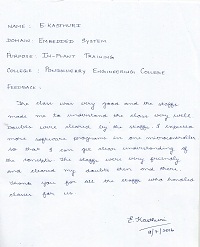 NAME : E.KASTHURI
DOMAIN : EMBEDDED SYSTEM
PURPOSE : IN-PLANT TRAINING
COLLEGE : PONDICHERRY ENGINEERING COLLEGE
FEEDBACK :
The class was very good and the staffs
made me to understand the class very well.
Doubts were cleared by the staffs. I expected
more software programs in one microcontroller
so that I can get clear understanding of
the concepts. The staffs were very friendly
and cleared my doubts then and there.
Thank you for all the staffs who handled
classes for us.
E. Kasthuri
11/7/2016